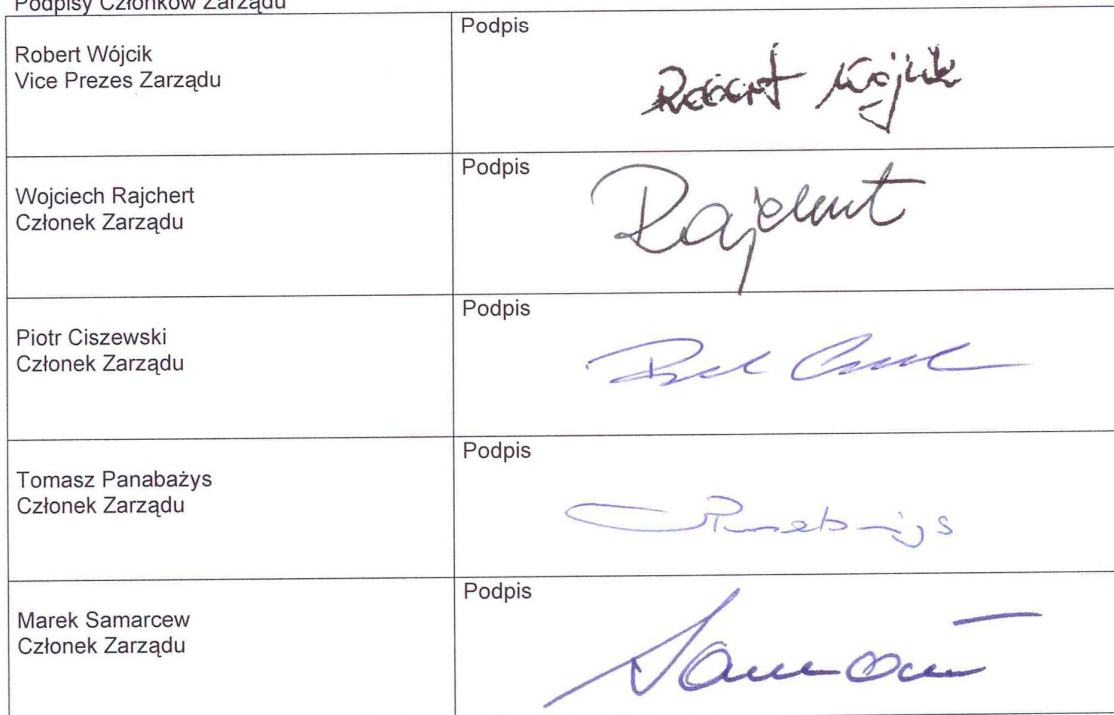 Podpisy Członków Zarządu
Robert Wójcik
Vice Prezes Zarządu
Podpis
Robert Wójcik
Wojciech Rajchert
Członek Zarządu
Podpis
Rajchert
Piotr Ciszewski
Członek Zarządu
Podpis
Tomasz Panabażys
Członek Zarządu
Podpis
Marek Samarcew
Członek Zarządu
Podpis